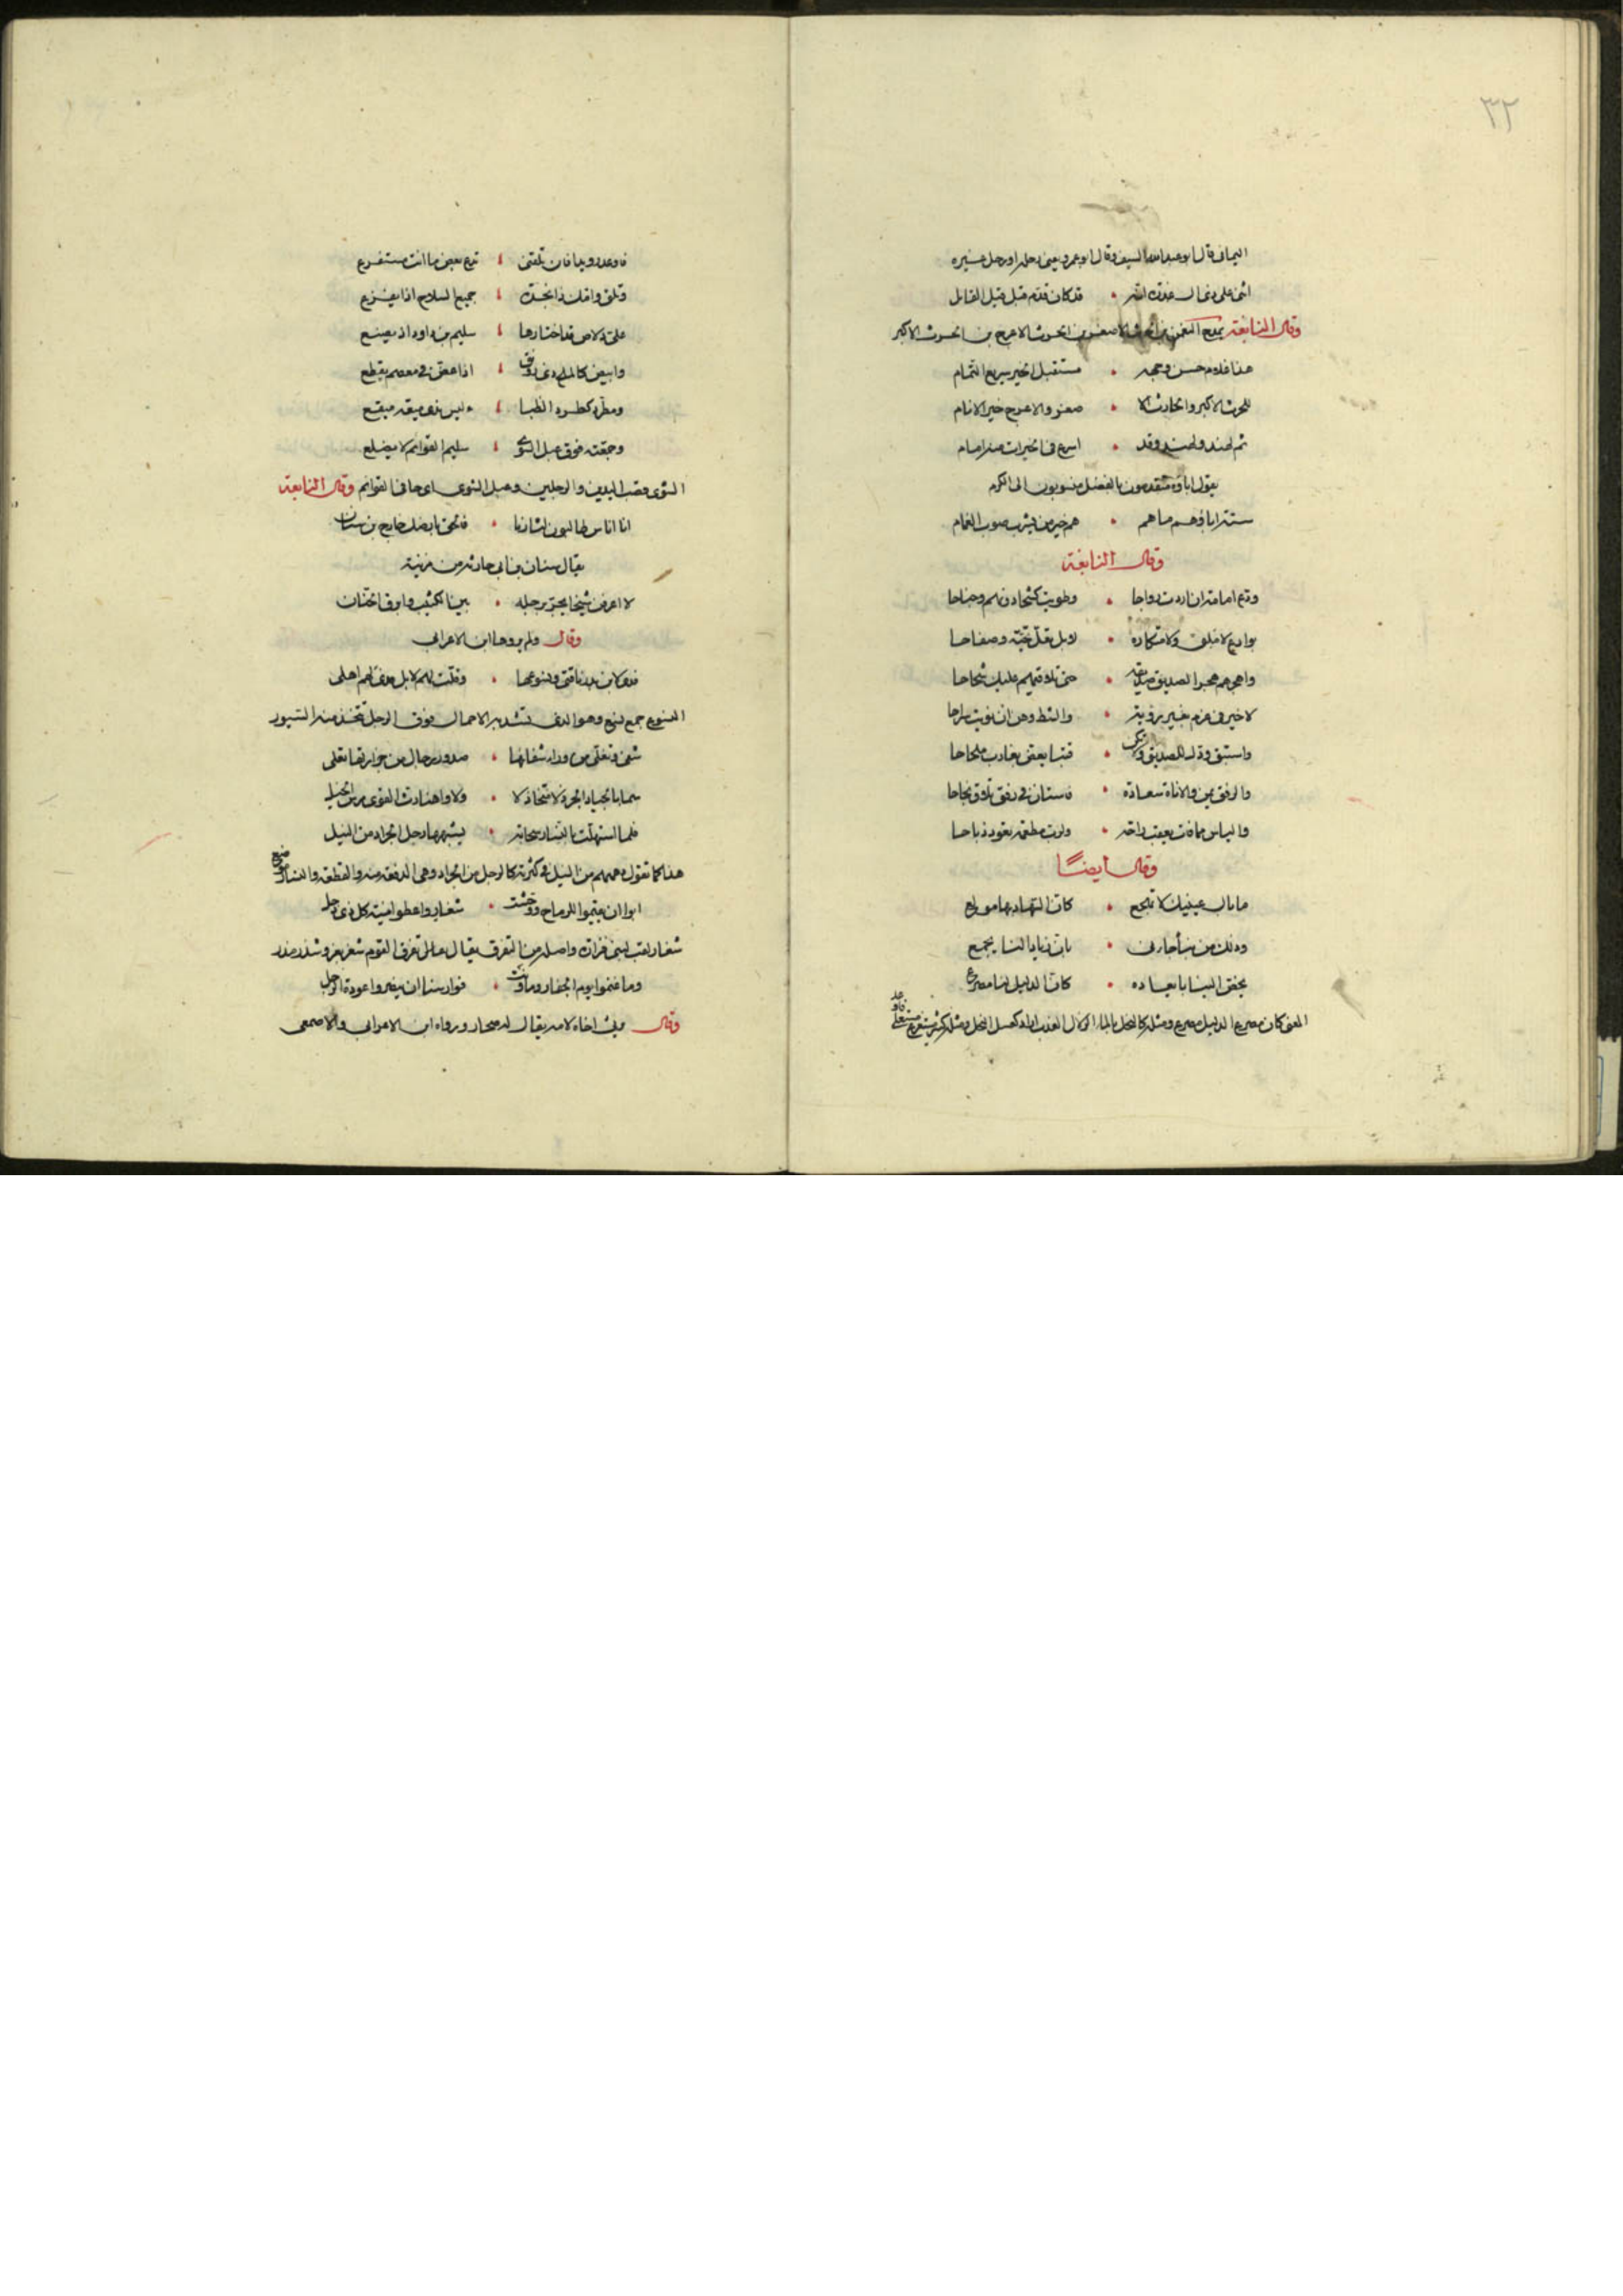 ٣٢
اليمانى قال ابو عبد الله السيف وقال ابو عمرو يعنى رحله او رحل غيره
اثنى على ذى ال عذرة انه قد كان قدم قبل قيل القايل
وقال النابغة يمدح النعمن بن الحرث الاصغر بن الحرث الاعرج بن الحرث الاكبر
هذا غلام حسن وجهه مستقبل الخير سريع التمام
للحرث الاكبر والحارث الا صغر والاعرج خير الانام
ثم لهند ولهند وقد اسرع فى الخيرات منه امام
يقول اباؤه متقدمون بالفضل منسوبون الى الكرم
ستة اباؤهم ما هم هم خير من يشرب صوب الغمام
وقال النابغة
ودع امامة ان اردت رواحا وطويت كشحا دونهم وجناحا
بوداع لا ملق ولا متكاره لا بل تعل تحية وصفاحا
واهجرهم هجر الصديق صديقه حتى تلاقيهم عليك شحاحا
لا خير فى عزم بغير روية والشك وهن ان نويت سراحا
واستبق ودك للصديق ولا تكن قتبا يعض بغارب ملحاحا
والرفق يمن والاناة سعادة فاستان فى رفق تلاق نجاحا
والياس مما فات يعقب راحة ولرب مطعمة تعود ذباحا
وقال ايضًا
ما بال عينيك لا تهجع كان السهاد بها مولع
وذلك من نبأ جاءنى بان زيادا لنا يجمع
يخفى الينا بابعاده كان الدليل لنا مصرع
المعنى كان مصرع الدليل مصرع ومثله كالنحل بالماء العذب اراد كعسل النحل ومثله كثير
فاوعد رويدا فان تلقنى تدع بعض ما انت مستفرع
وتلق وامك ذا نجدة جميع السلاح اذا يفزع
على دلاص قد اختارها سليم بن داود اذ يصنع
وابيض كالملح ذى رونق اذا عض فى معصم يقطع
ومطرد كطرد الظبا ء ليس بذى ميقع
وجعبته فوق عبل الشوى سليم القوائم لا يضلع
الشوى قصب اليدين والرجلين وعبل الشوى اى جافى القوائم وقال النابغة
انا اناس طالبون لثارنا فالحق بارضك خارج بن سنان
يقال سنان بن ابى حارثة من مزينة
لا اعرفن شيخا يجر برجله بين الكثيب وابرق الحنان
وقال ولم يروها ابن الاعرابى
فدى لابن بدر ناقتى ونسوعها وقلت لهم لا بل فدى لهم اهلى
النسوع جمع نسع وهو الذى تشد به الاحمال فوق الرحل تتخذ من السيور
شفى وتغلى من وراء شغافها صدور رجال من حرارتها تغلى
سما بالجياد الجرد لا متخاذلا ولا واهنا رث القوى مرس الحبل
فلما استهلت بالنسار سحابة يشبهها رجل الجراد من النبل
هذا كما تقول دهمهم من النبل فى كثرته كالرجل من الجراد وهى الدفعة منه والقطعة والنسار موضع
ابوا ان يقيموا للرماح ووحشت شغار واعطوا منية كل ذى ذحل
شغار لقب لبنى فزارة واصله من التفرق يقال على تفرق القوم شغر بغر وشذر مذر
وما غنموا يوم الجفار وما ونت فوارسنا ان يضروا عودة الرجل
وقال يرثى اخاه لامه يقال له صحار ورواه ابن الاعرابى والاصمعى